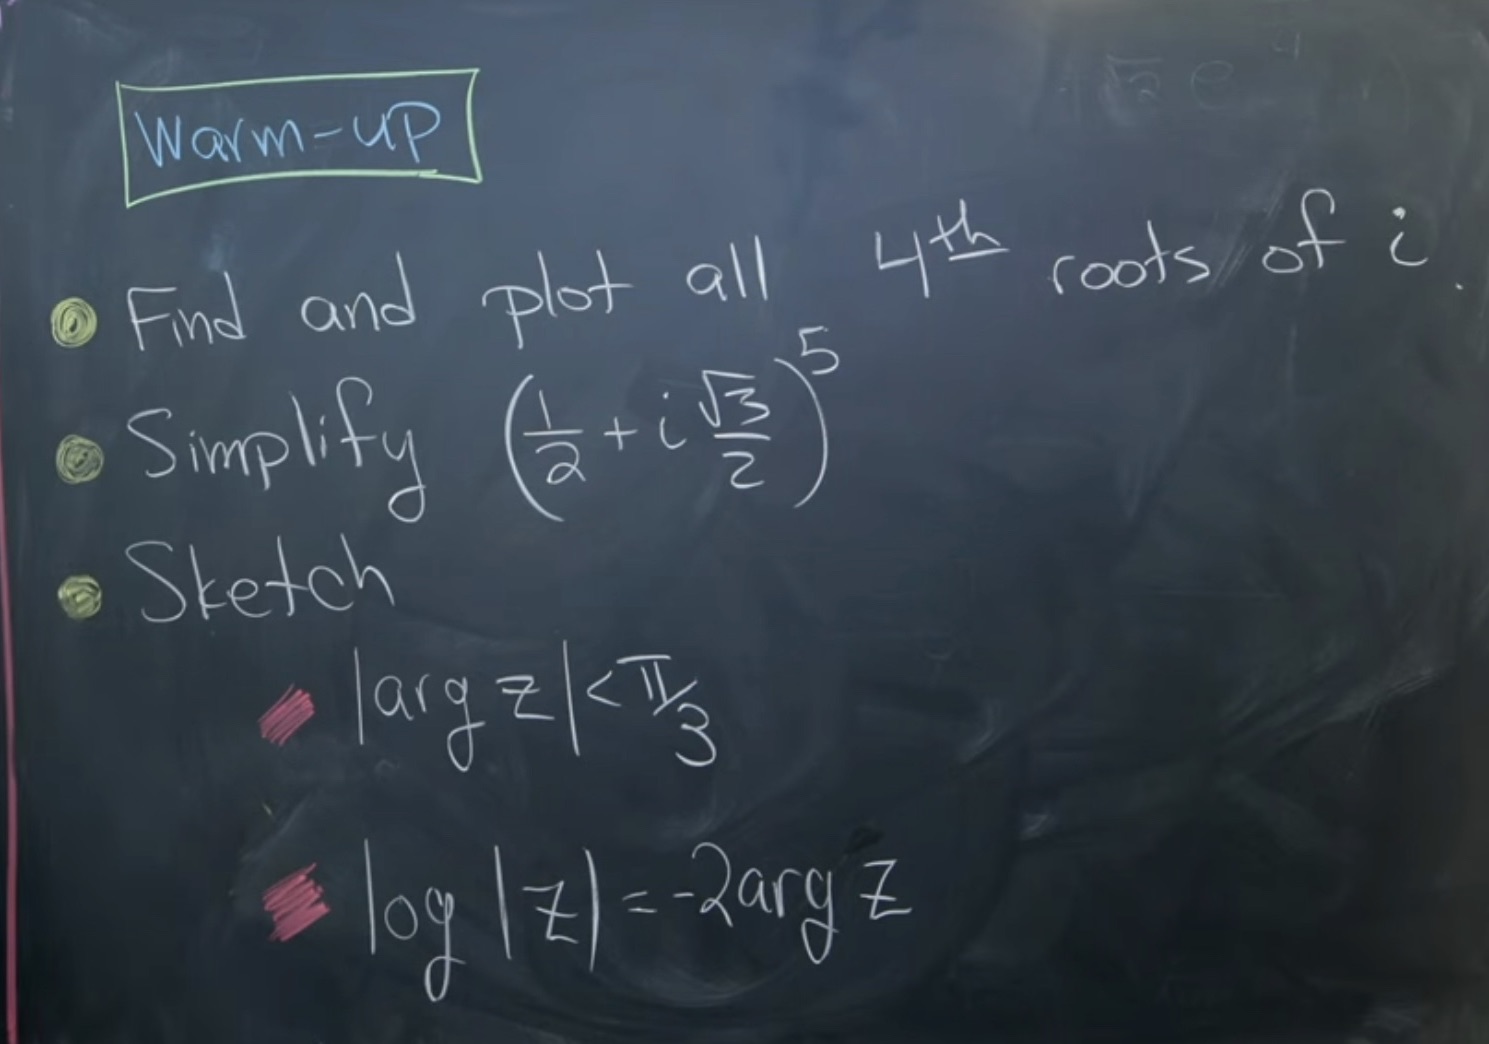 Warm-up
Find and plot all 4th roots of i.
Simplify (1/2 + i √3/2)^5
Sketch
|arg z| < π/3
log |z| = -2arg z